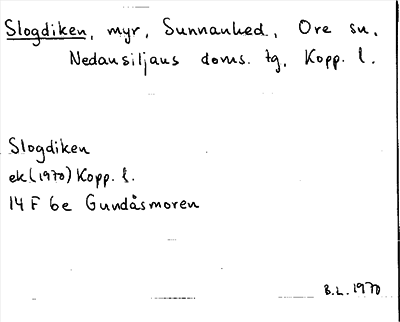 Slogdiken, myr, Sunnanhed, Ore sn,
Nedansiljans doms. tg, Kopp. l.
Slogdiken
ek (1970) Kopp. l.
14 F 6e Gundåsmoren
B.L. 1970